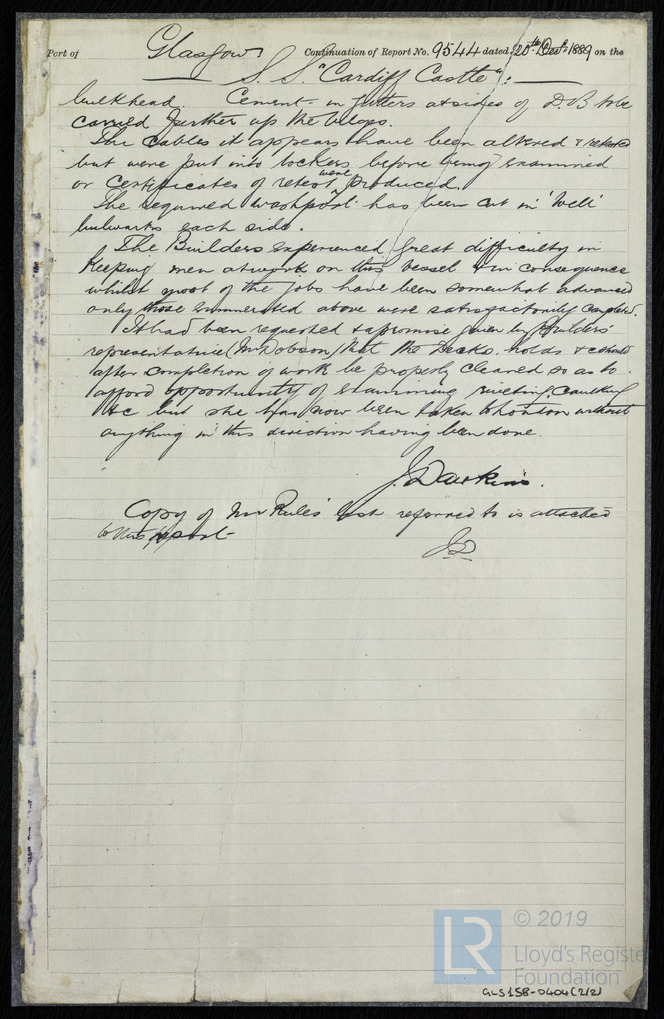 Port of Glasgow Continuation of Report No. 9544 dated 20th Decr 1889 on the
S. S. "Cardiff Castle":
bulkhead. Cement in gutters at sides of D.B to be
carried further up the bilges.
The cables it appears have been altered & retested
but were put into lockers before being examined
or certificates of retest were produced.
The required washport has been cut in 'Well'
bulwarks each side.
The Builders experienced great difficulty in
keeping men at work on this vessel & in consequence
whilst most of the jobs have been somewhat advanced
only those enumerated above were satisfactorily completed.
It had been requested & a promise given by Builders'
representative (Mr Dobson) that the Decks, holds &c should
after completion of work be properly cleaned so as to
afford opportunity of examining riveting, caulking
&c but she has now been taken to London without
anything in this direction having been done.
J. Dawkins.
Copy of Mr Rule's list referred to is attached
to this report
JD
LR
© 2019
Lloyd's Register
Foundation
GLS158-0404(2/2)